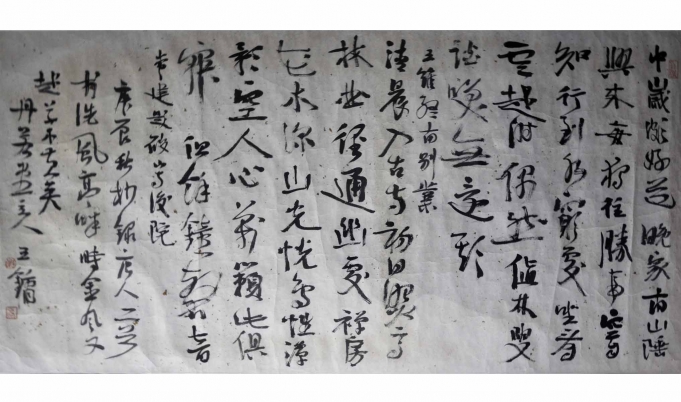 中歲頗好道晚家南山陲
興來每獨往勝事空自
知行到水窮處坐看
雲起時偶然值林叟
談咲無還期
王維終南別業
清晨入古寺初日照高
林曲徑通幽處禪房
花木深山光悅鳥性潭
影空人心萬籟此俱
寂但餘鐘磬音
常建題破山寺後院
秋抄錄唐人二
風亭畔時金風又
起草木黃矣
主人王鏞